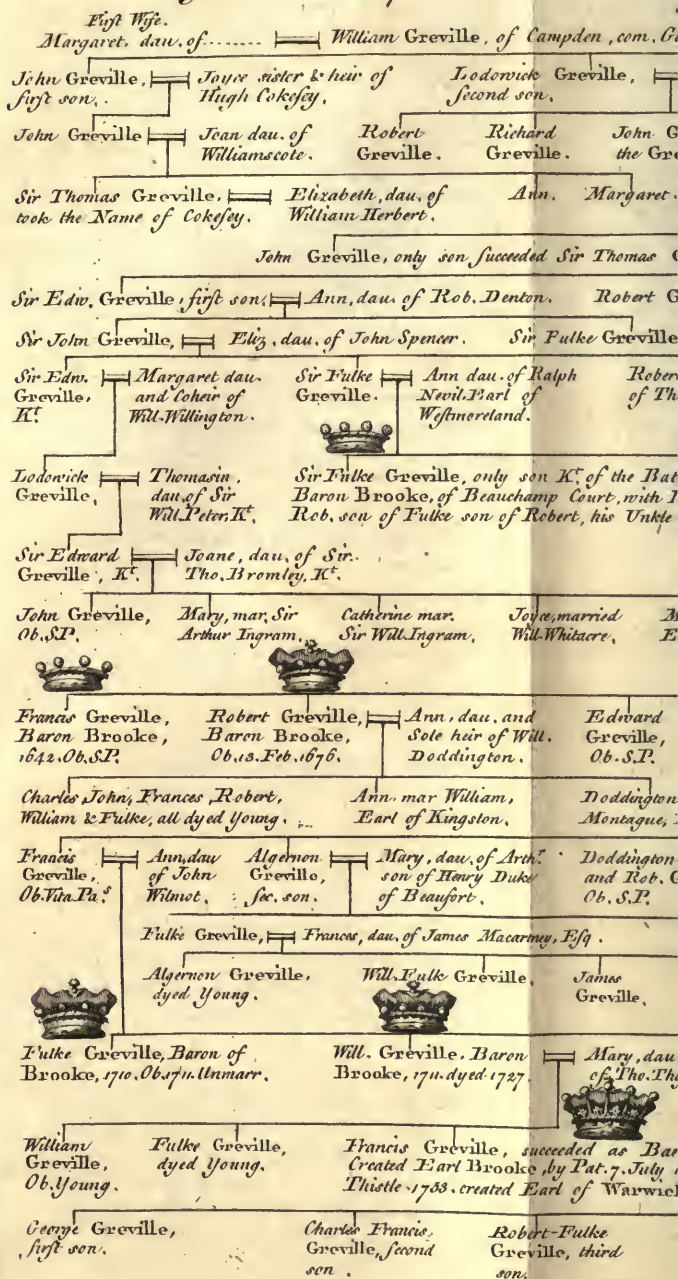 First Wife.
Margaret, dau. of......... William Greville, of Campden, com. G
John Greville, first son.
Joyce sister & heir of Hugh Cokesey.
Lodowick Greville, second son.
John Greville
Joan dau. of Williamscote.
Robert Greville.
Richard Greville.
John G
the Gre
Sir Thomas Greville, took the Name of Cokesey.
Elizabeth, dau. of William Herbert.
Ann.
Margaret.
John Greville, only son succeeded Sir Thomas
Sir Edw. Greville, first son,
Ann, dau. of Rob. Denton.
Robert G
Sir John Greville,
Eliz. dau. of John Spencer.
Sir Fulke Greville
Sir Edw. Greville, Kt.
Margaret dau. and Coheir of Will. Willington.
Sir Fulke Greville.
Ann dau. of Ralph Nevil. Earl of Westmoreland.
Rober
of Th
Lodowick Greville,
Thomasin, dau. of Sir Will. Peter, Kt.
Sir Fulke Greville, only son Kt. of the Bat
Baron Brooke, of Beauchamp Court, with
Rob. son of Fulke son of Robert, his Unkle
Sir Edward Greville, Kt.
Joane, dau. of Sir. Tho. Bromley, Kt.
John Greville, Ob. S.P.
Mary, mar. Sir Arthur Ingram,
Catherine mar. Sir Will. Ingram,
Joyce, married Will. Whitacre,
Francis Greville, Baron Brooke, 1642. Ob. S.P.
Robert Greville, Baron Brooke, Ob. 13. Feb. 1676.
Ann, dau. and Sole heir of Will. Doddington.
Edward Greville, Ob. S.P.
Charles, John, Frances, Robert, William & Fulke, all dyed Young.
Ann. mar William, Earl of Kingston,
Doddington
Montague,
Francis Greville, Ob. Vita Pa.s
Ann, dau of John Wilmot.
Algernon Greville, sec. son.
Mary, dau. of Arth.r son of Henry Duke of Beaufort.
Doddington
and Rob. G
Ob. S.P.
Fulke Greville,
Frances, dau. of James Macartney, Esq.
Algernon Greville, dyed Young.
Will. Fulk Greville,
James Greville,
Fulke Greville, Baron of Brooke, 1710. Ob. 1711. Unmarr.
Will. Greville. Baron Brooke, 1711. dyed 1727.
Mary, dau
of Tho. Thy
William Greville, Ob. Young.
Fulke Greville, dyed Young.
Francis Greville, succeeded as Bar
Created Earl Brooke, by Pat. 7. July
Thistle. 1753. created Earl of Warwick
George Greville, first son.
Charles Francis, Greville, second son.
Robert-Fulke Greville, third son.